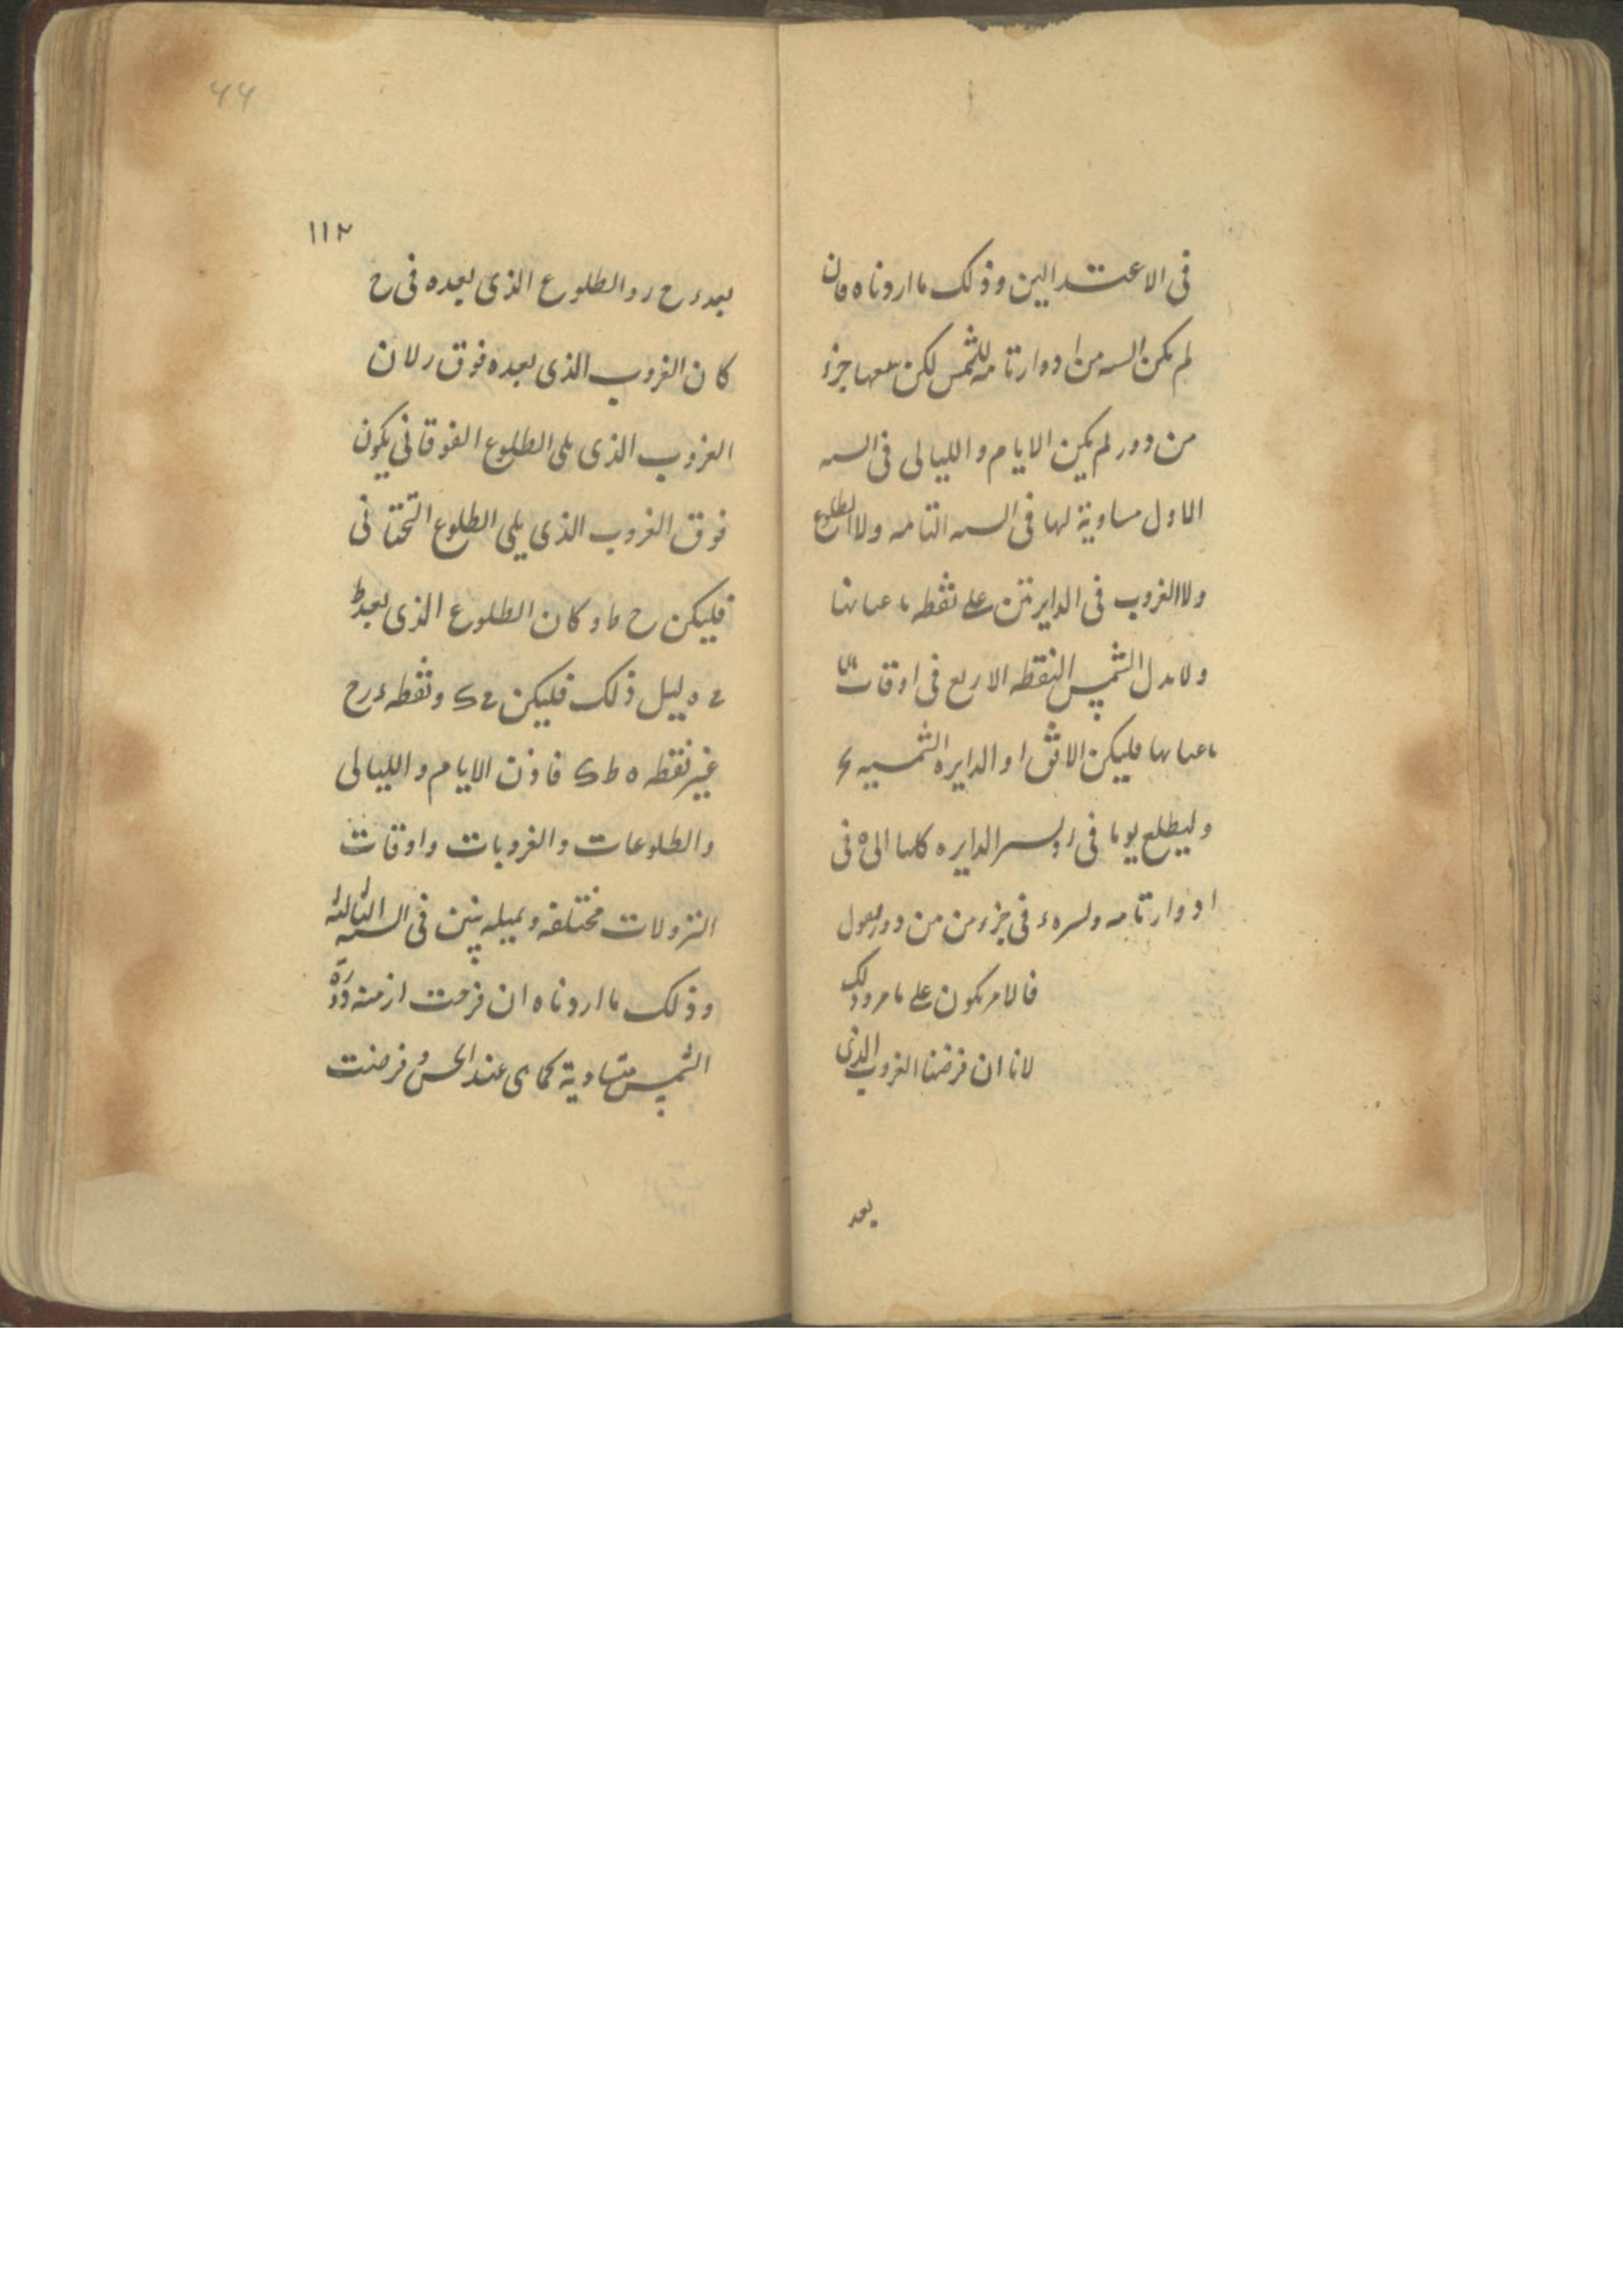 فى الاعتدالين وذلك ما اردناه فان
لم يكن السنه من ادوار تامه للشمس لكن معها جزء
من دور لم يكن الايام والليالى فى السنه
الاول مساوية لها فى السنه التامه ولا الطلوع
ولا الغروب فى الدايرتين على نقطه باعيانها
ولا الشمس النقطه الاربع فى اوقات
باعيانها فليكن الافق ا و الدايره الشمسيه
وليطلع يوما فى ر الدايره كلها الى ه فى
ادوار تامه و فى جزء من دور
فالامر يكون على ما مر وذلك
لانا ان فرضنا الغروب الذى
بعد
٤٤
١١٢
بعد ء ح ر والطلوع الذى بعده فى ح
كان الغروب الذى بعده فوق ر لان
الغروب الذى يلى الطلوع الفوقانى يكون
فوق الغروب الذى يلى الطلوع التحتانى
فليكن ح ط و كان الطلوع الذى بعد
ه ليل ذلك فليكن ونقطه ء ر ح
غير نقطه ه ط ك فاذن الايام والليالى
والطلوعات والغروبات واوقات
النزولات مختلفه وبميله يتبين فى السنه الثالثه
وذلك ما اردناه ان فرضت ازمنه دورة
الشمس متساوية كما ى عند الحس و فرضت